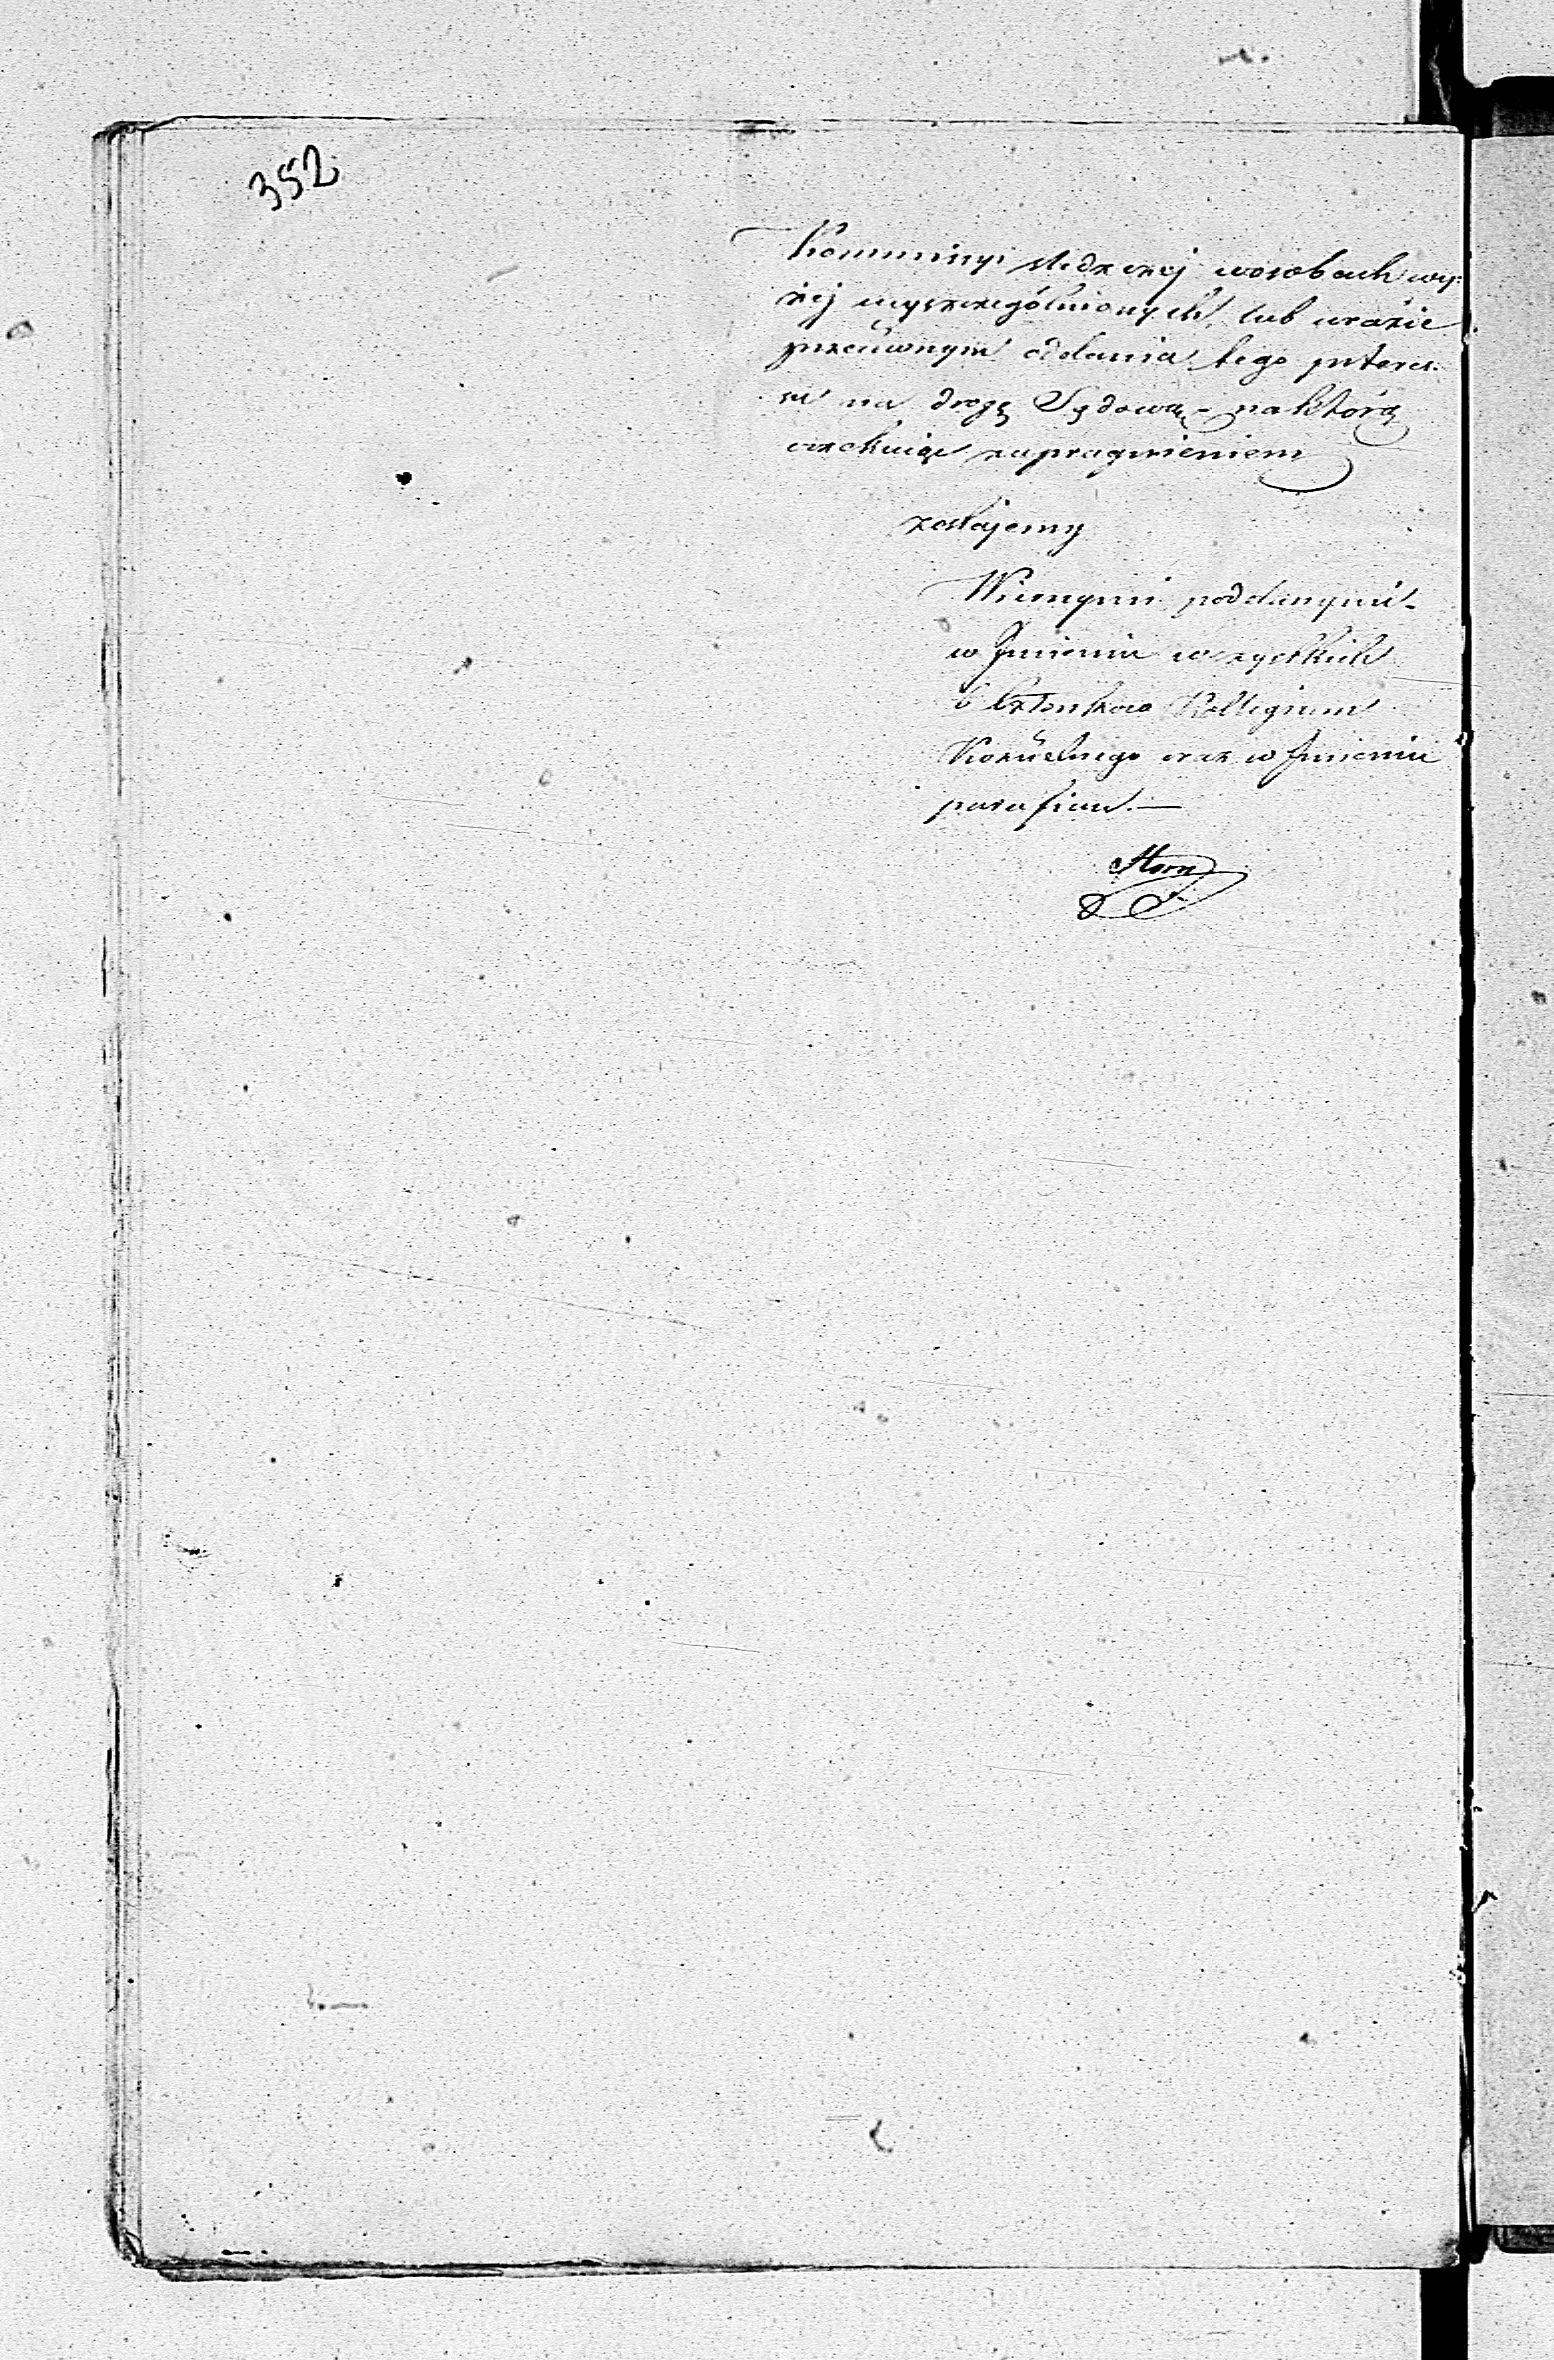 352
Kommissyi śledczej wosobach wy:
żej wyszczególnionych, lub wrazie
przeciwnym oddania tego interes:
su na drogę Sądową, na którą
oczekując zupragnieniem
zostajemy
Wiernymi poddanymi
w Imieniu wszystkich
6 Członków Kollegium
Kościelnego oraz w Imieniu
parafian. —